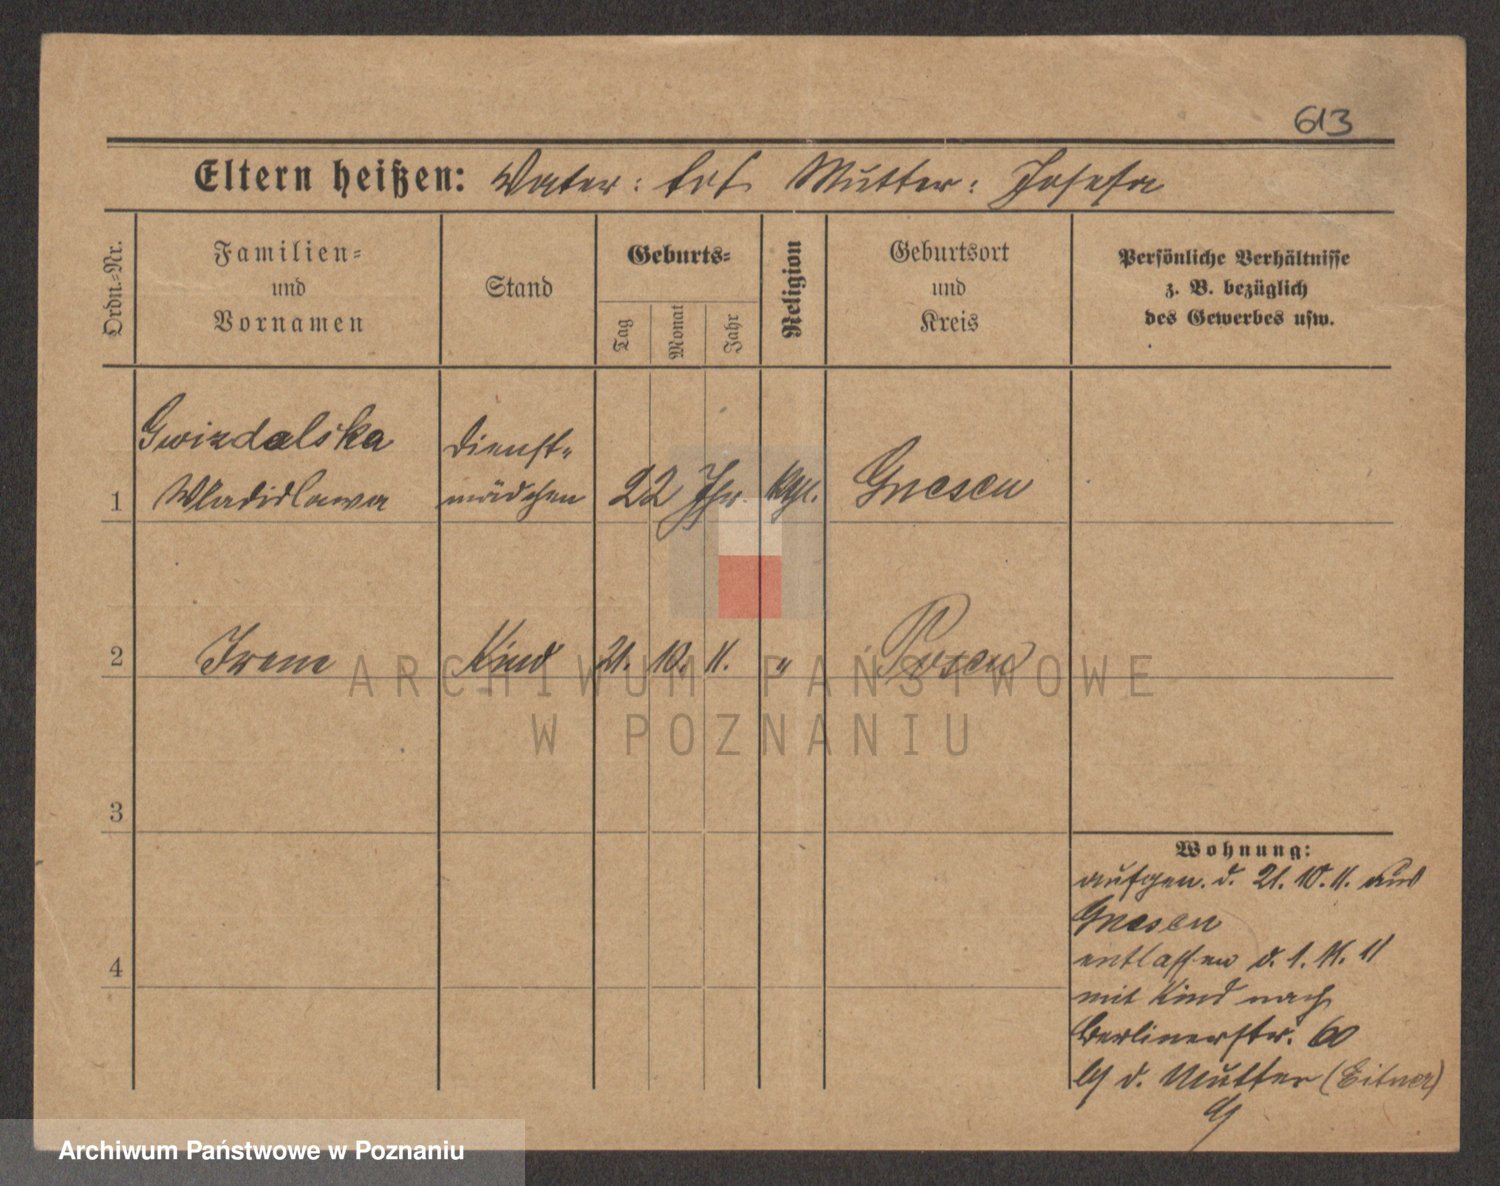 613
Eltern heißen: Vater: tot Mutter: Josefa
Ordn.-Nr.
Familien-
und
Vornamen
Stand
Geburts-
Tag
Monat
Jahr
Religion
Geburtsort
und
Kreis
Persönliche Verhältnisse
z. B. bezüglich
des Gewerbes usw.
Gwizdalska
Dienst-
1 Wladislawa mädchen 22 Jhr. Gnesen
2 Irene Kind 21. 10. 11. " Posen
3
4
Wohnung:
aufgen. d. 21. 10. 11. aus
Gnesen
entlassen d. 1. 11. 11
mit Kind nach
Berlinerstr. 60
d. Mutter (Eitner)
ARCHIWUM PAŃSTWOWE
W POZNANIU
Archiwum Państwowe w Poznaniu